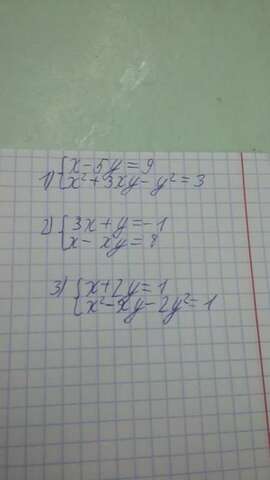 1) { x - 5y = 9
x² + 3xy - y² = 3
2) { 3x + y = -1
x - xy = 8
3) { x + 2y = 1
x² - xy - 2y² = 1